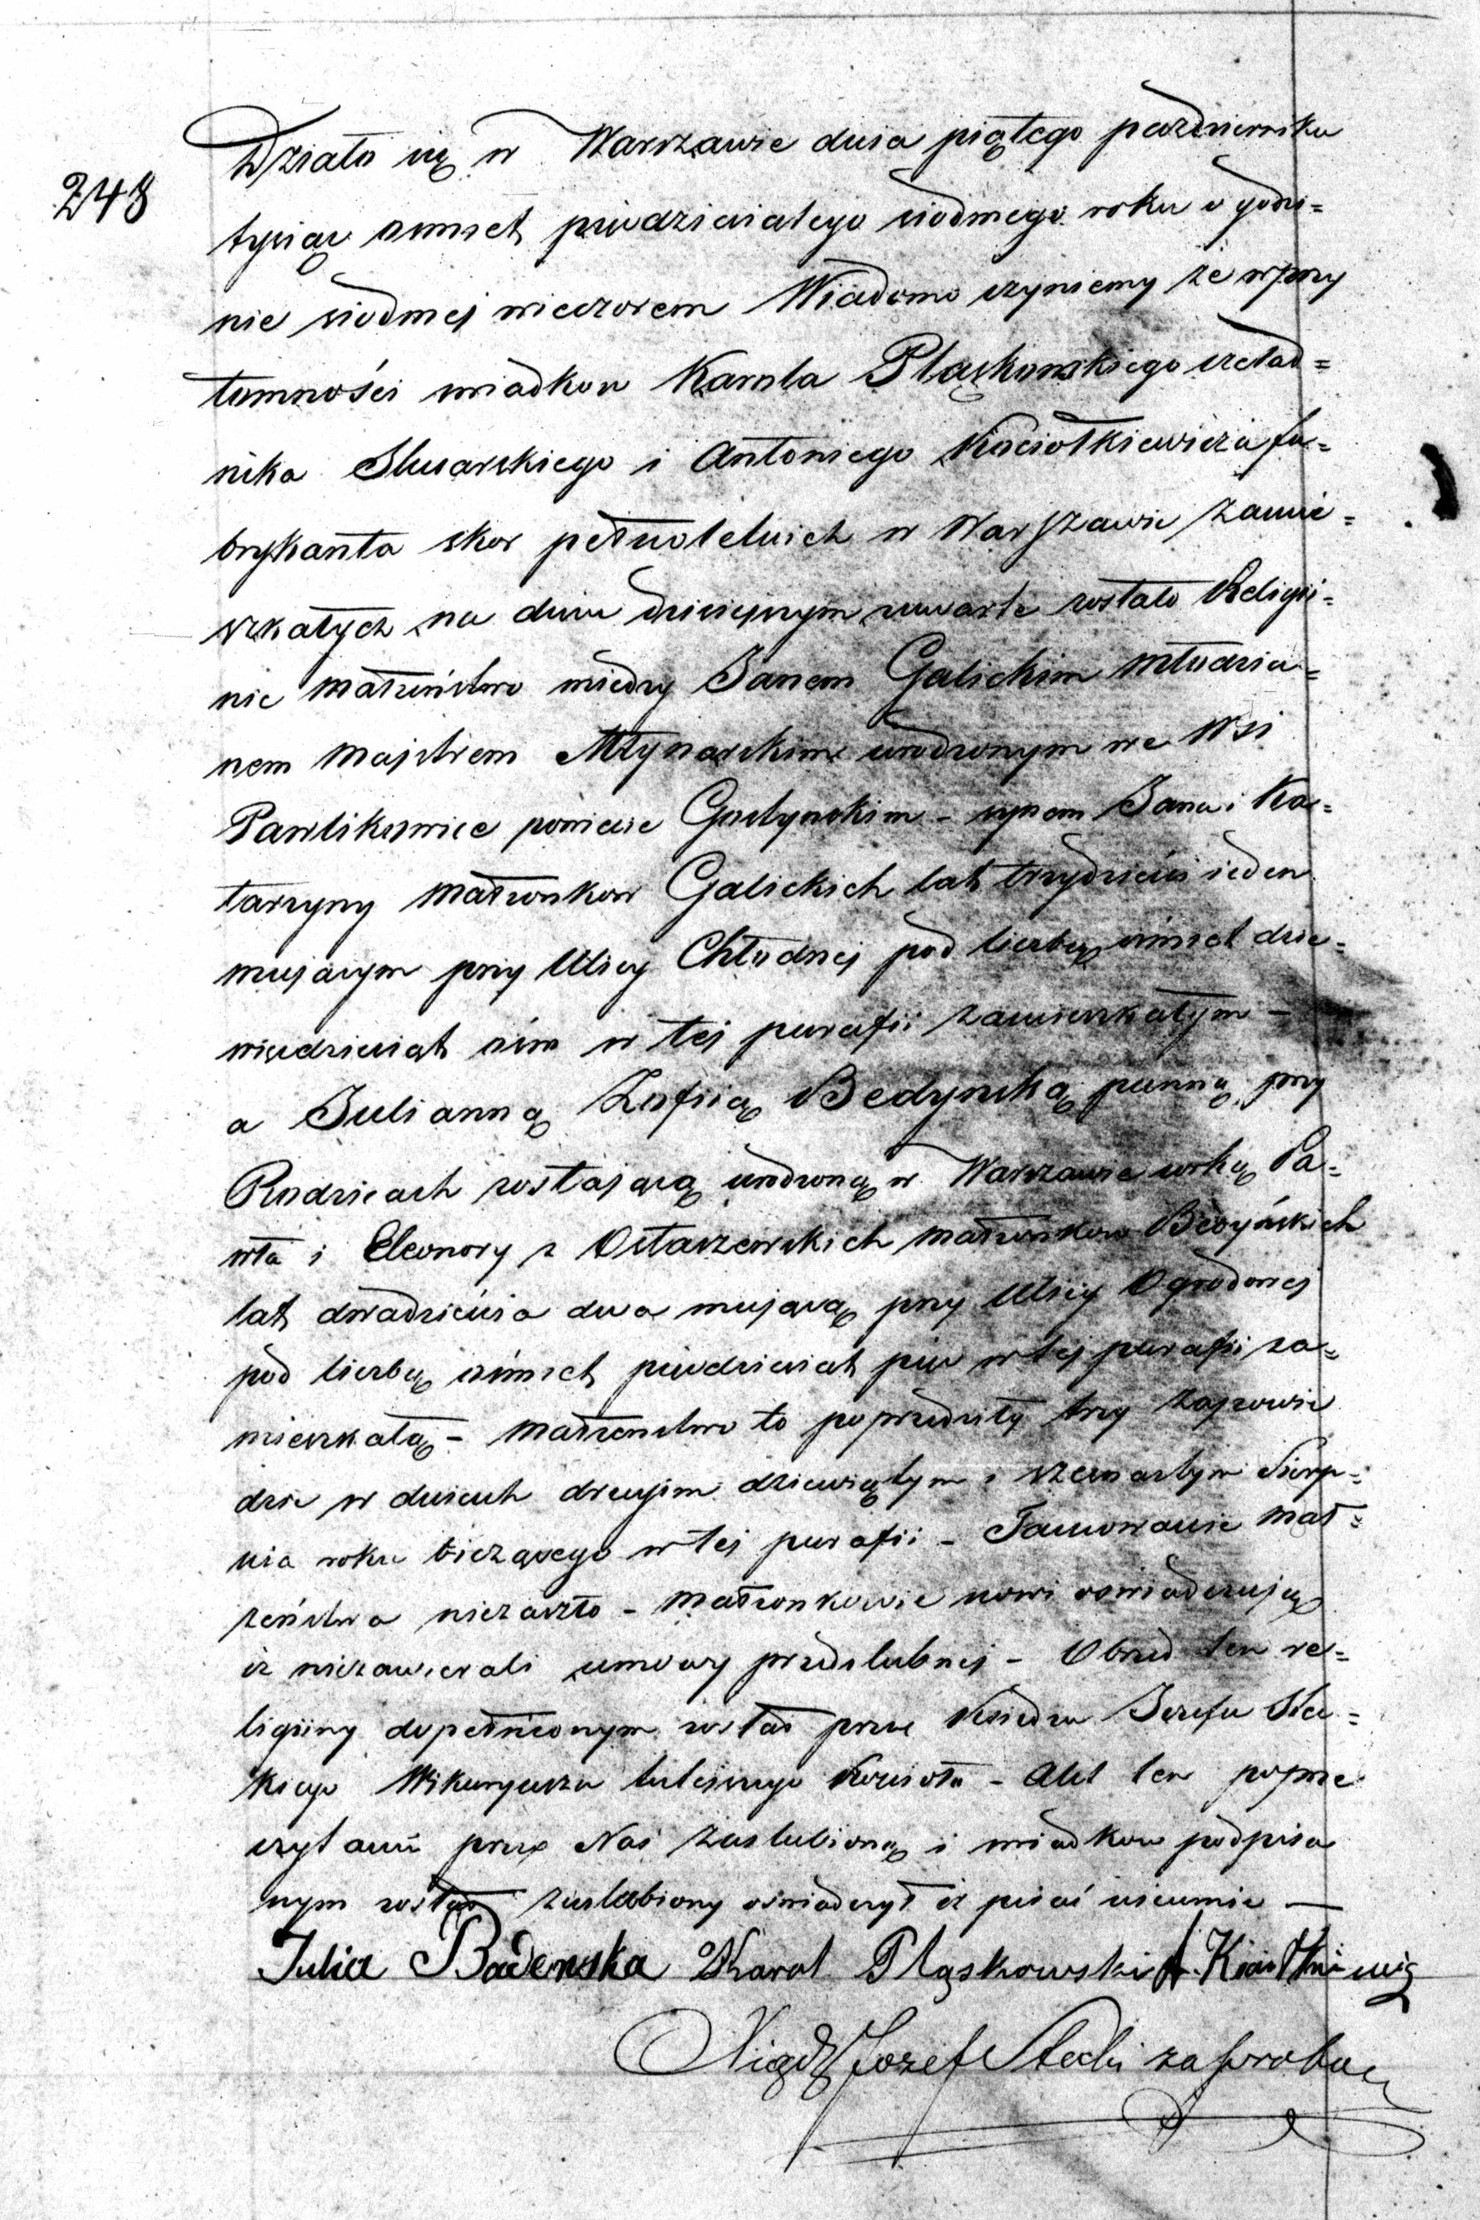 248
Działo się w Warszawie dnia piątego pazdziernika
tysiąc osmset piedziesiatego siodmego roku o godzi=
nie siodmej wieczorem Wiadomo czyniemy że w przy
tomności swiadkow Karola Pląskowskiego czelad=
nika Slusarskiego i Antoniego Kosciołkiewicza fa=
brykanta skor pełnoletnich w Warszawie zamie=
szkałych na dniu dzisiejszym zawarte zostało Religij=
nie małzeństwo miedzy Janem Galickim Młodzia=
nem Majstrem Młynarskim urodzonym we Wsi
Pawlikowice powiecie Gostynskim - synem Jana i Ka=
tarzyny Małzonkow Galickich lat trzydzieści ieden
maiącym przy Ulicy Chłodnej pod liczbą osmset dzie=
więdziesiąt osm w tej parafii zamieszkałym -
a Julianną Zofiią Bedynską panną przy
Rodzicach zostającą urodzoną w Warszawie corką Pa=
wła i Eleonory z Ostaszewskich małzonkow Bedyńskich
lat dwadzieścia dwa mającą przy Ulicy Ogrodowej
pod liczbą osmset piedziesiat pięc w tej parafii za=
mieszkałą - Małzenstwo to poprzedziły trzy zapowie
dzie w dniach drugim dziewiątym i szesnastym Sierp=
nia roku bieżącego w tej parafii - Tamowanie mał=
żeństwa niezaszło - Małzonkowie nowi oswiadczają
iz niezawierali umowy przedslubnej - Obrzęd ten re=
ligijny dopełnionym został przez Xiedza Jozefa Stec=
kiego Wikaryusza tutejszego Koscioła - Akt ten po prze
czytaniu przez Nas zaslubioną i swiadkow podpisa
nym został zaslubiony oświadczył iż pisać nieumie -
Julia Badenska Karol Pląskowski A. Kościołkiewicz
Xiądz Jozef Stecki za Proboszcz